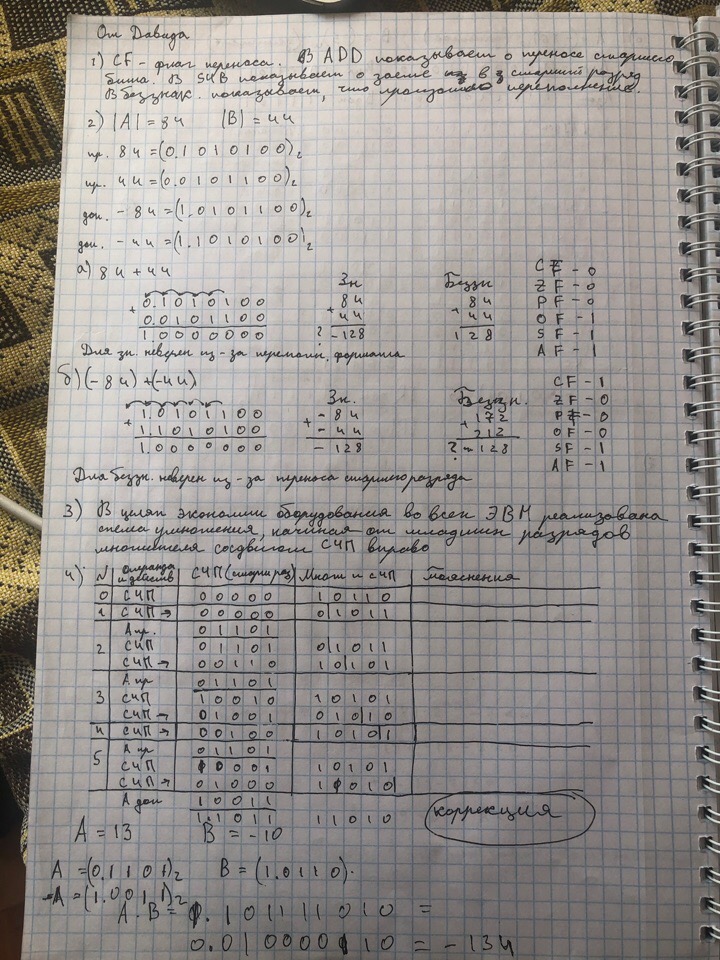 От Давида
1) CF - флаг переноса. В ADD показывает о переносе старшего
бита. В SUB показывает о заеме в старший разряд
В беззнак. показывает, что произошло переполнение.
2) |A| = 84 |B| = 44
пр. 84 = (0.1010100)₂
пр. 44 = (0.0101100)₂
доп. -84 = (1.0101100)₂
доп. -44 = (1.1010100)₂
а) 84 + 44
Зн Беззн CF - 0
+ 0.1010100 + 84 + 84 ZF - 0
0.0101100 44 44 PF - 0
1.0000000 ? -128 128 OF - 1
SF - 1
Для зн. неверен из-за переполн. формата AF - 1
б) (-84) + (-44)
Зн. Беззн. CF - 1
+ 1.0101100 + -84 + 172 ZF - 0
1.1010100 -44 212 PF - 0
1.0000000 -128 ? 128 OF - 0
SF - 1
AF - 1
Для беззн. неверен из-за переноса старшего разряда
3) В целях экономии оборудования во всех ЭВМ реализована
схема умножения, начиная от младших разрядов
множителя со сдвигом СЧП вправо
4) N Операнда и действ СЧП (старш раз) Множ и СЧП Пояснения
0 СЧП 00000 10110
1 СЧП → 00000 01011
А пр. 01101
2 СЧП 01101 01011
СЧП → 00110 10101
А пр 01101
3 СЧП 10010 10101
СЧП → 01001 01010
4 СЧП → 00100 10101
А пр 01101
5 СЧП 10001 10101
СЧП → 01000 11010
А доп 10011
1.1011 11010 коррекция
A = 13 B = -10
A = (0.1101)₂ B = (1.0110).
-A = (1.0011)₂
A·B = 1.101111010 =
0.010000110 = -134